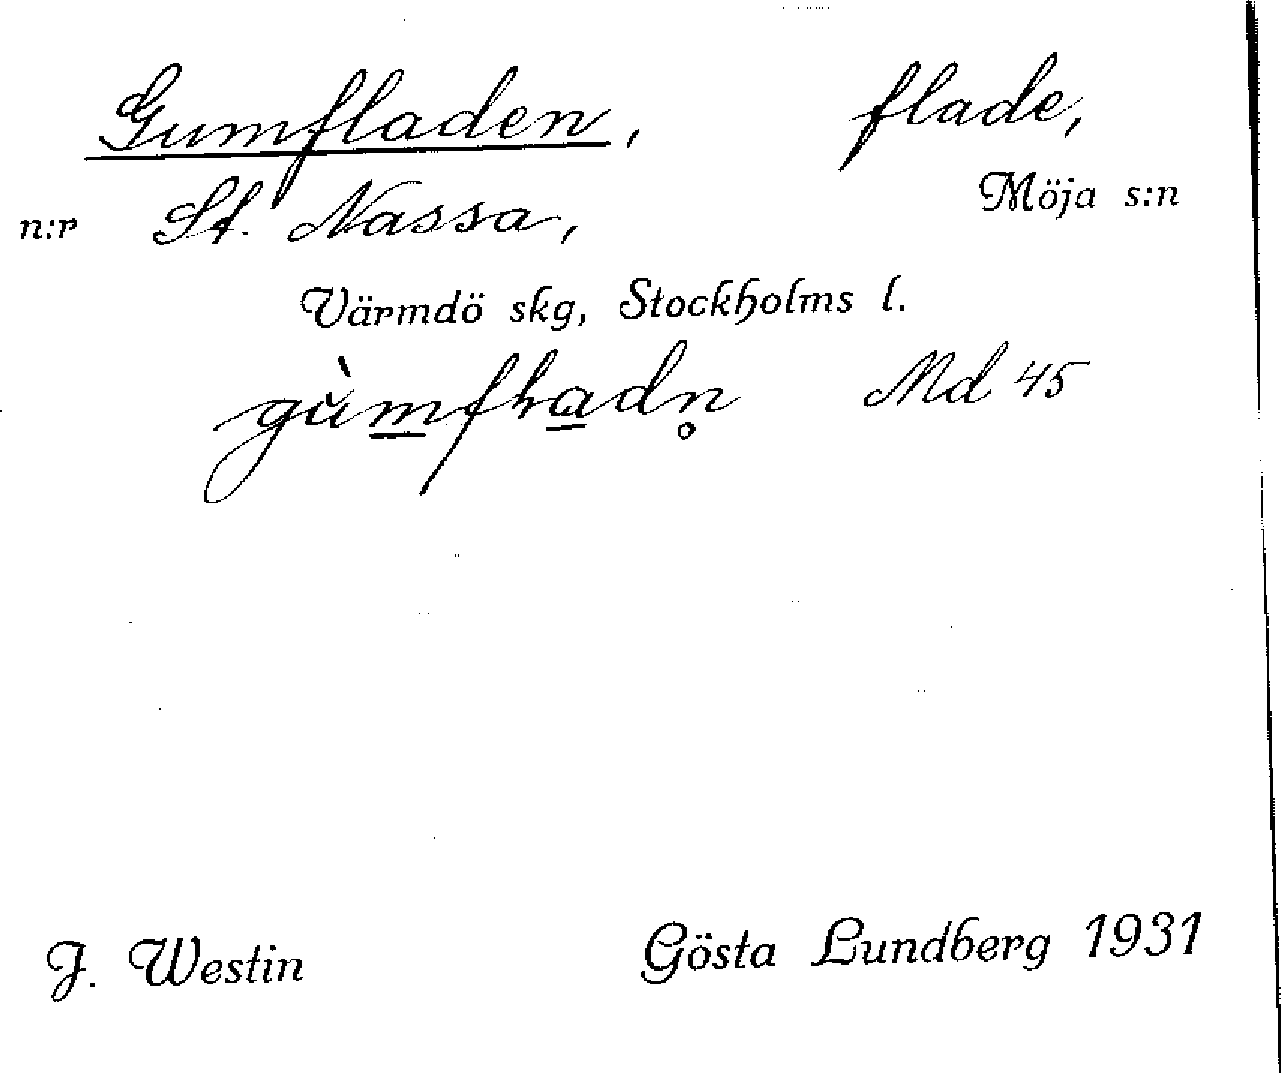 Gumfladen, flade,
n:r St. Nassa, Möja s:n
Värmdö skg, Stockholms l.
Md 45
J. Westin Gösta Lundberg 1931